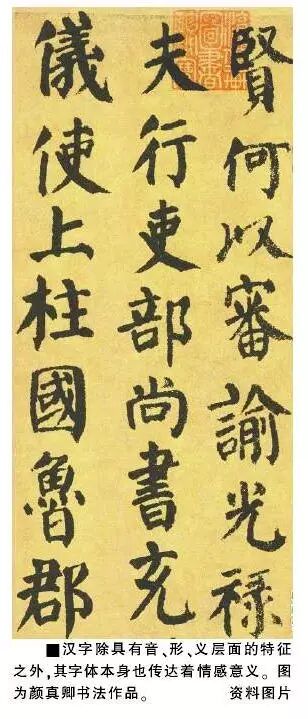 賢何以審諭光祿
夫行吏部尚書充
儀使上柱國魯郡
■汉字除具有音、形、义层面的特征
之外，其字体本身也传达着情感意义。图
为颜真卿书法作品。 资料图片